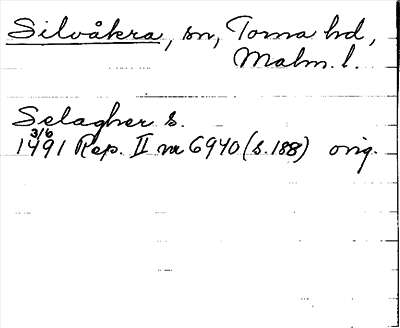 Silvåkra, sn, Torna hd,
Malm. l.
Selagher s.
3/6
1491 Rep. II nr 6940 (s. 188) orig.